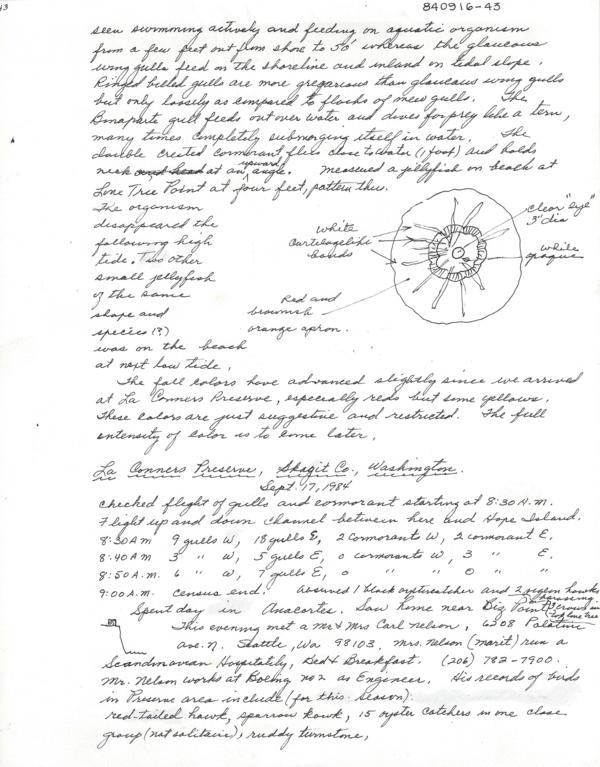 43
840916-43
seen swimming actively and feeding on aquatic organism
from a few feet out from shore to 50' whereas the glaucous
wing gulls feed on the shoreline and inland on tidal slope.
Ringed billed gulls are more gregarious than glaucous wing gulls
but only loosely as compared to flocks of mew gulls. The
Bonaparte gull feeds out over water and dives for prey like a tern,
many times completely submerging itself in water. The
double crested cormorant flies close to water (1 foot) and holds
neck and head at an upward angle. Measured a jellyfish on beach at
Lone Tree Point at four feet, pattern thus.
The organism
disappeared the
following high
tide. Two other
small jellyfish
of the same
shape and
species (?)
was on the beach
at next low tide.
White
Cartilagelike
bands
Red and
brownish
orange apron.
clear "eye"
3" dia
white
opaque
The fall colors have advanced slightly since we arrived
at La Conners Preserve, especially reds but some yellows.
These colors are just suggestive and restricted. The full
intensity of color is to come later.
La Conners Preserve, Skagit Co., Washington.
Sept. 17, 1984
Checked flight of gulls and cormorant starting at 8:30 A.M.
Flight up and down channel between here and Hope Island.
8:30 AM 9 gulls W, 18 gulls E, 2 cormorants W, 2 cormorant E.
8:40 AM 3 " W, 5 gulls E, 0 cormorants W, 3 " E.
8:50 A.M. 6 " W, 7 gulls E, 0 " " 0 " "
9:00 A.M. census end. Observed 1 black oystercatcher and 2 pigeon hawks
harassing
3 crows in
Spent day in Anacortes. Saw home near Biz Point.
This evening met a Mr & Mrs Carl Nelson, 6208 Palatine
Ave. N. Seattle, Wa 98103. Mrs. Nelson (Marit) run a
Scandinavian Hospitality, Bed & Breakfast. (206) 782-7900.
Mr. Nelson works at Boeing as Engineer. His records of birds
in Preserve area include (for this season):
red-tailed hawk, sparrow hawk, 15 oyster catchers in one close
group (not solitaire), ruddy turnstone,